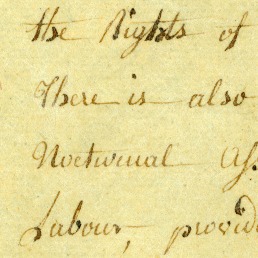 the Rights of
There is also
Nocturnal As
Labour, provid